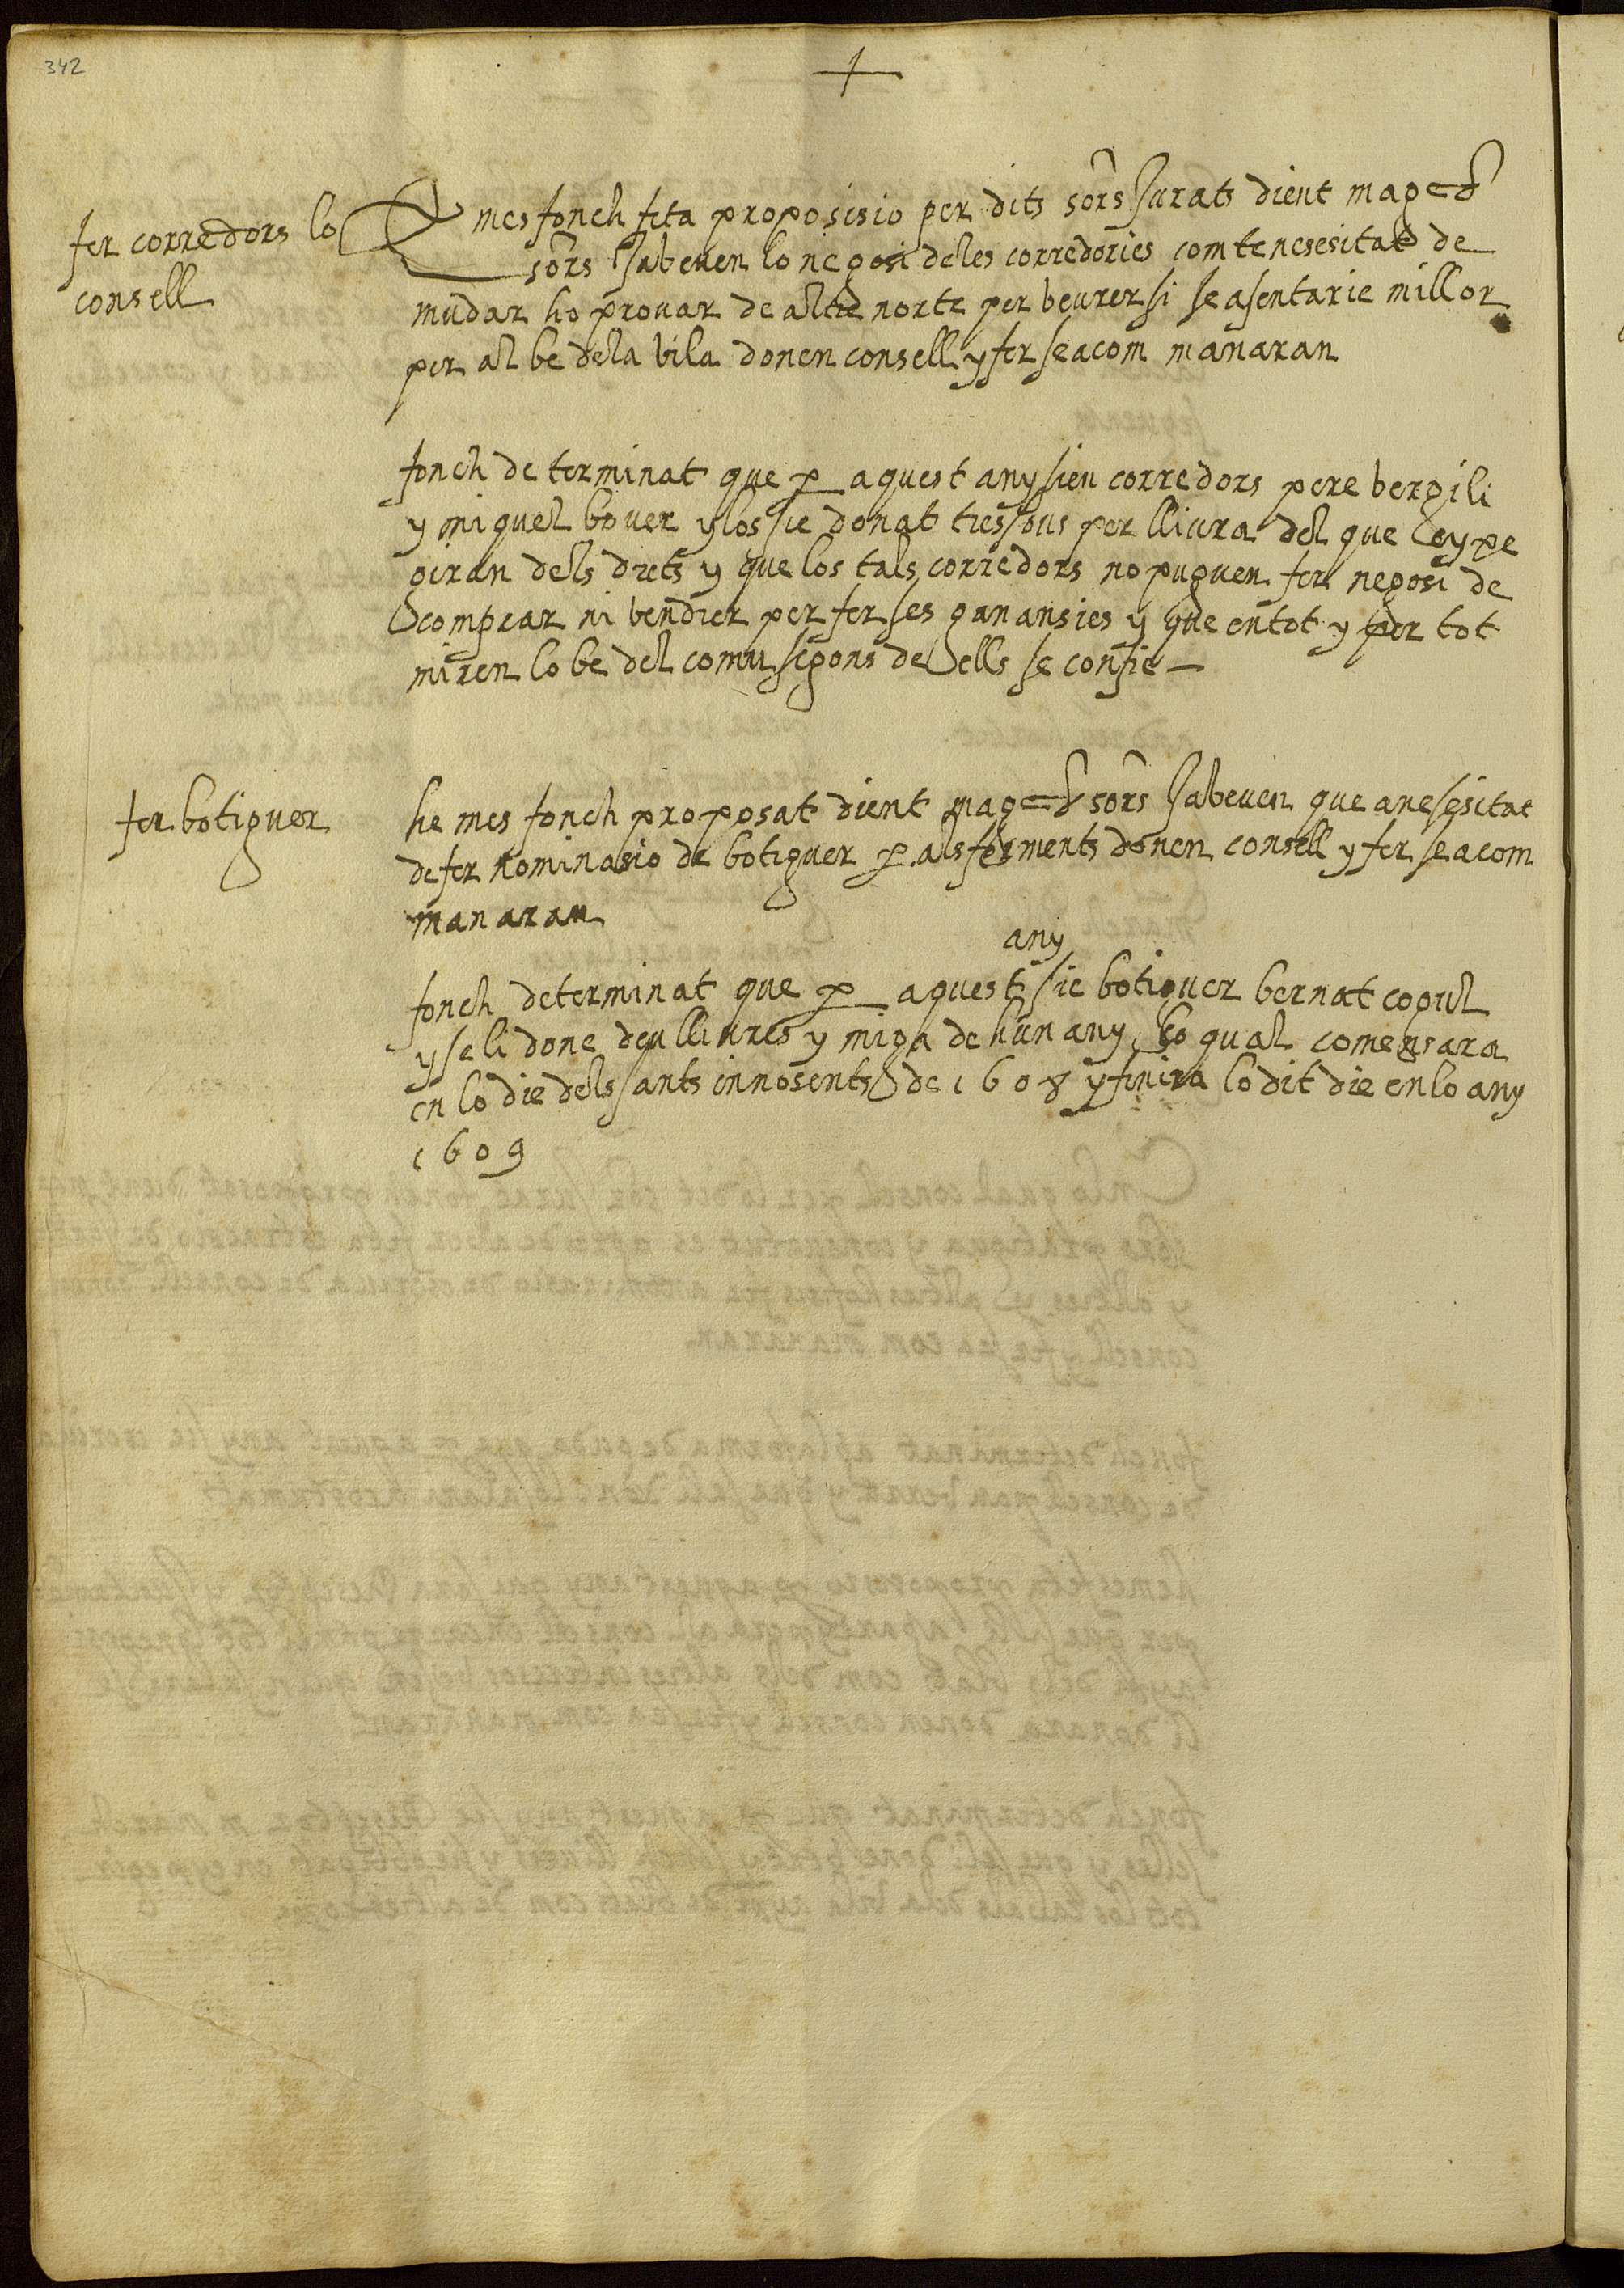 342
fer corredors lo
consell
E mes fonch feta proposisio per dits sors Jurats dient mags
sors Ja beuen lo negosi deles corredories com te nesesitat de
mudar ho prouar de altre norte per beurer si se asentarie millor
per al be dela bila donen consell y fer sea com manaran
fonch determinat que p aquest any sien corredors pere bergili
y miquel bouer y los sie donat tres sous per lliura del que
oiran dels drets y que los tals corredors no puguen fer negosi de
comprar ni bendrer per fer ses ganansies y que en tot y per tot
miren lo be del comu segons de ells se confie
fer botiguer
he mes fonch proposat dient mags sors Ja beuen que a nesesitat
de fer nominasio de botiguer p als forments donen consell y fer sea com
manaran
any
fonch determinat que p aquest sie botiguer bernat copul
y se li done deu lliures y miga de hun any lo qual comensara
en lo die dels sants innosents de 1608 y finira lo dit die en lo any
1609